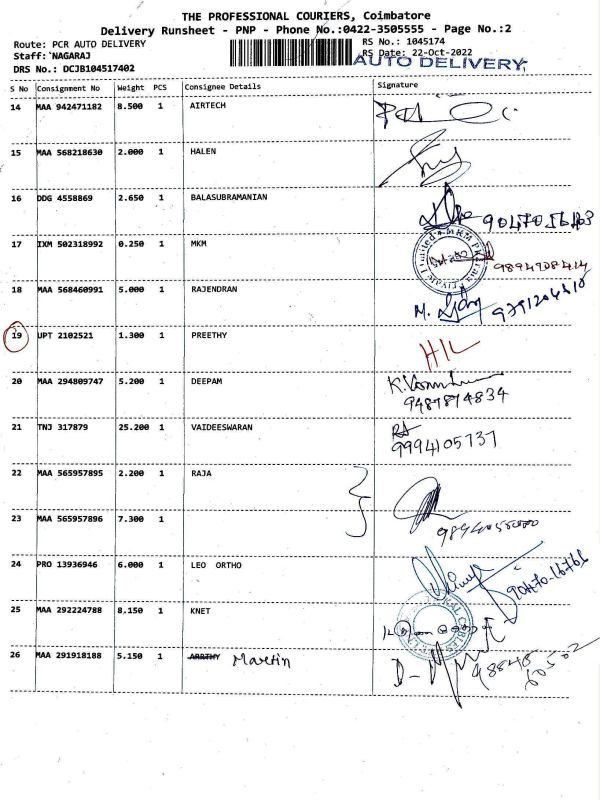 THE PROFESSIONAL COURIERS, Coimbatore
Delivery Runsheet - PNP - Phone No.:0422-3505555 - Page No.:2
Route: PCR AUTO DELIVERY RS No.: 1045174
Staff: NAGARAJ RS Date: 22-Oct-2022
AUTO DELIVERY,
DRS No.: DCJB104517402
S No Consignment No Weight PCS Consignee Details Signature
14 MAA 942471182 8.500 1 AIRTECH
15 MAA 568218630 2.000 1 HALEN
16 DDG 4558869 2.650 1 BALASUBRAMANIAN
17 IXM 502318992 0.250 1 MKM
9894908414
18 MAA 568460991 5.000 1 RAJENDRAN
19 UPT 2102521 1.300 1 PREETHY
20 MAA 294809747 5.200 1 DEEPAM
9487874834
21 TNJ 317879 25.200 1 VAIDEESWARAN
9994105737
22 MAA 565957895 2.200 1 RAJA
23 MAA 565957896 7.300 1
24 PRO 13936946 6.000 1 LEO ORTHO
25 MAA 292224788 8.150 1 KNET
26 MAA 291918188 5.150 1 ARRTHY Martin